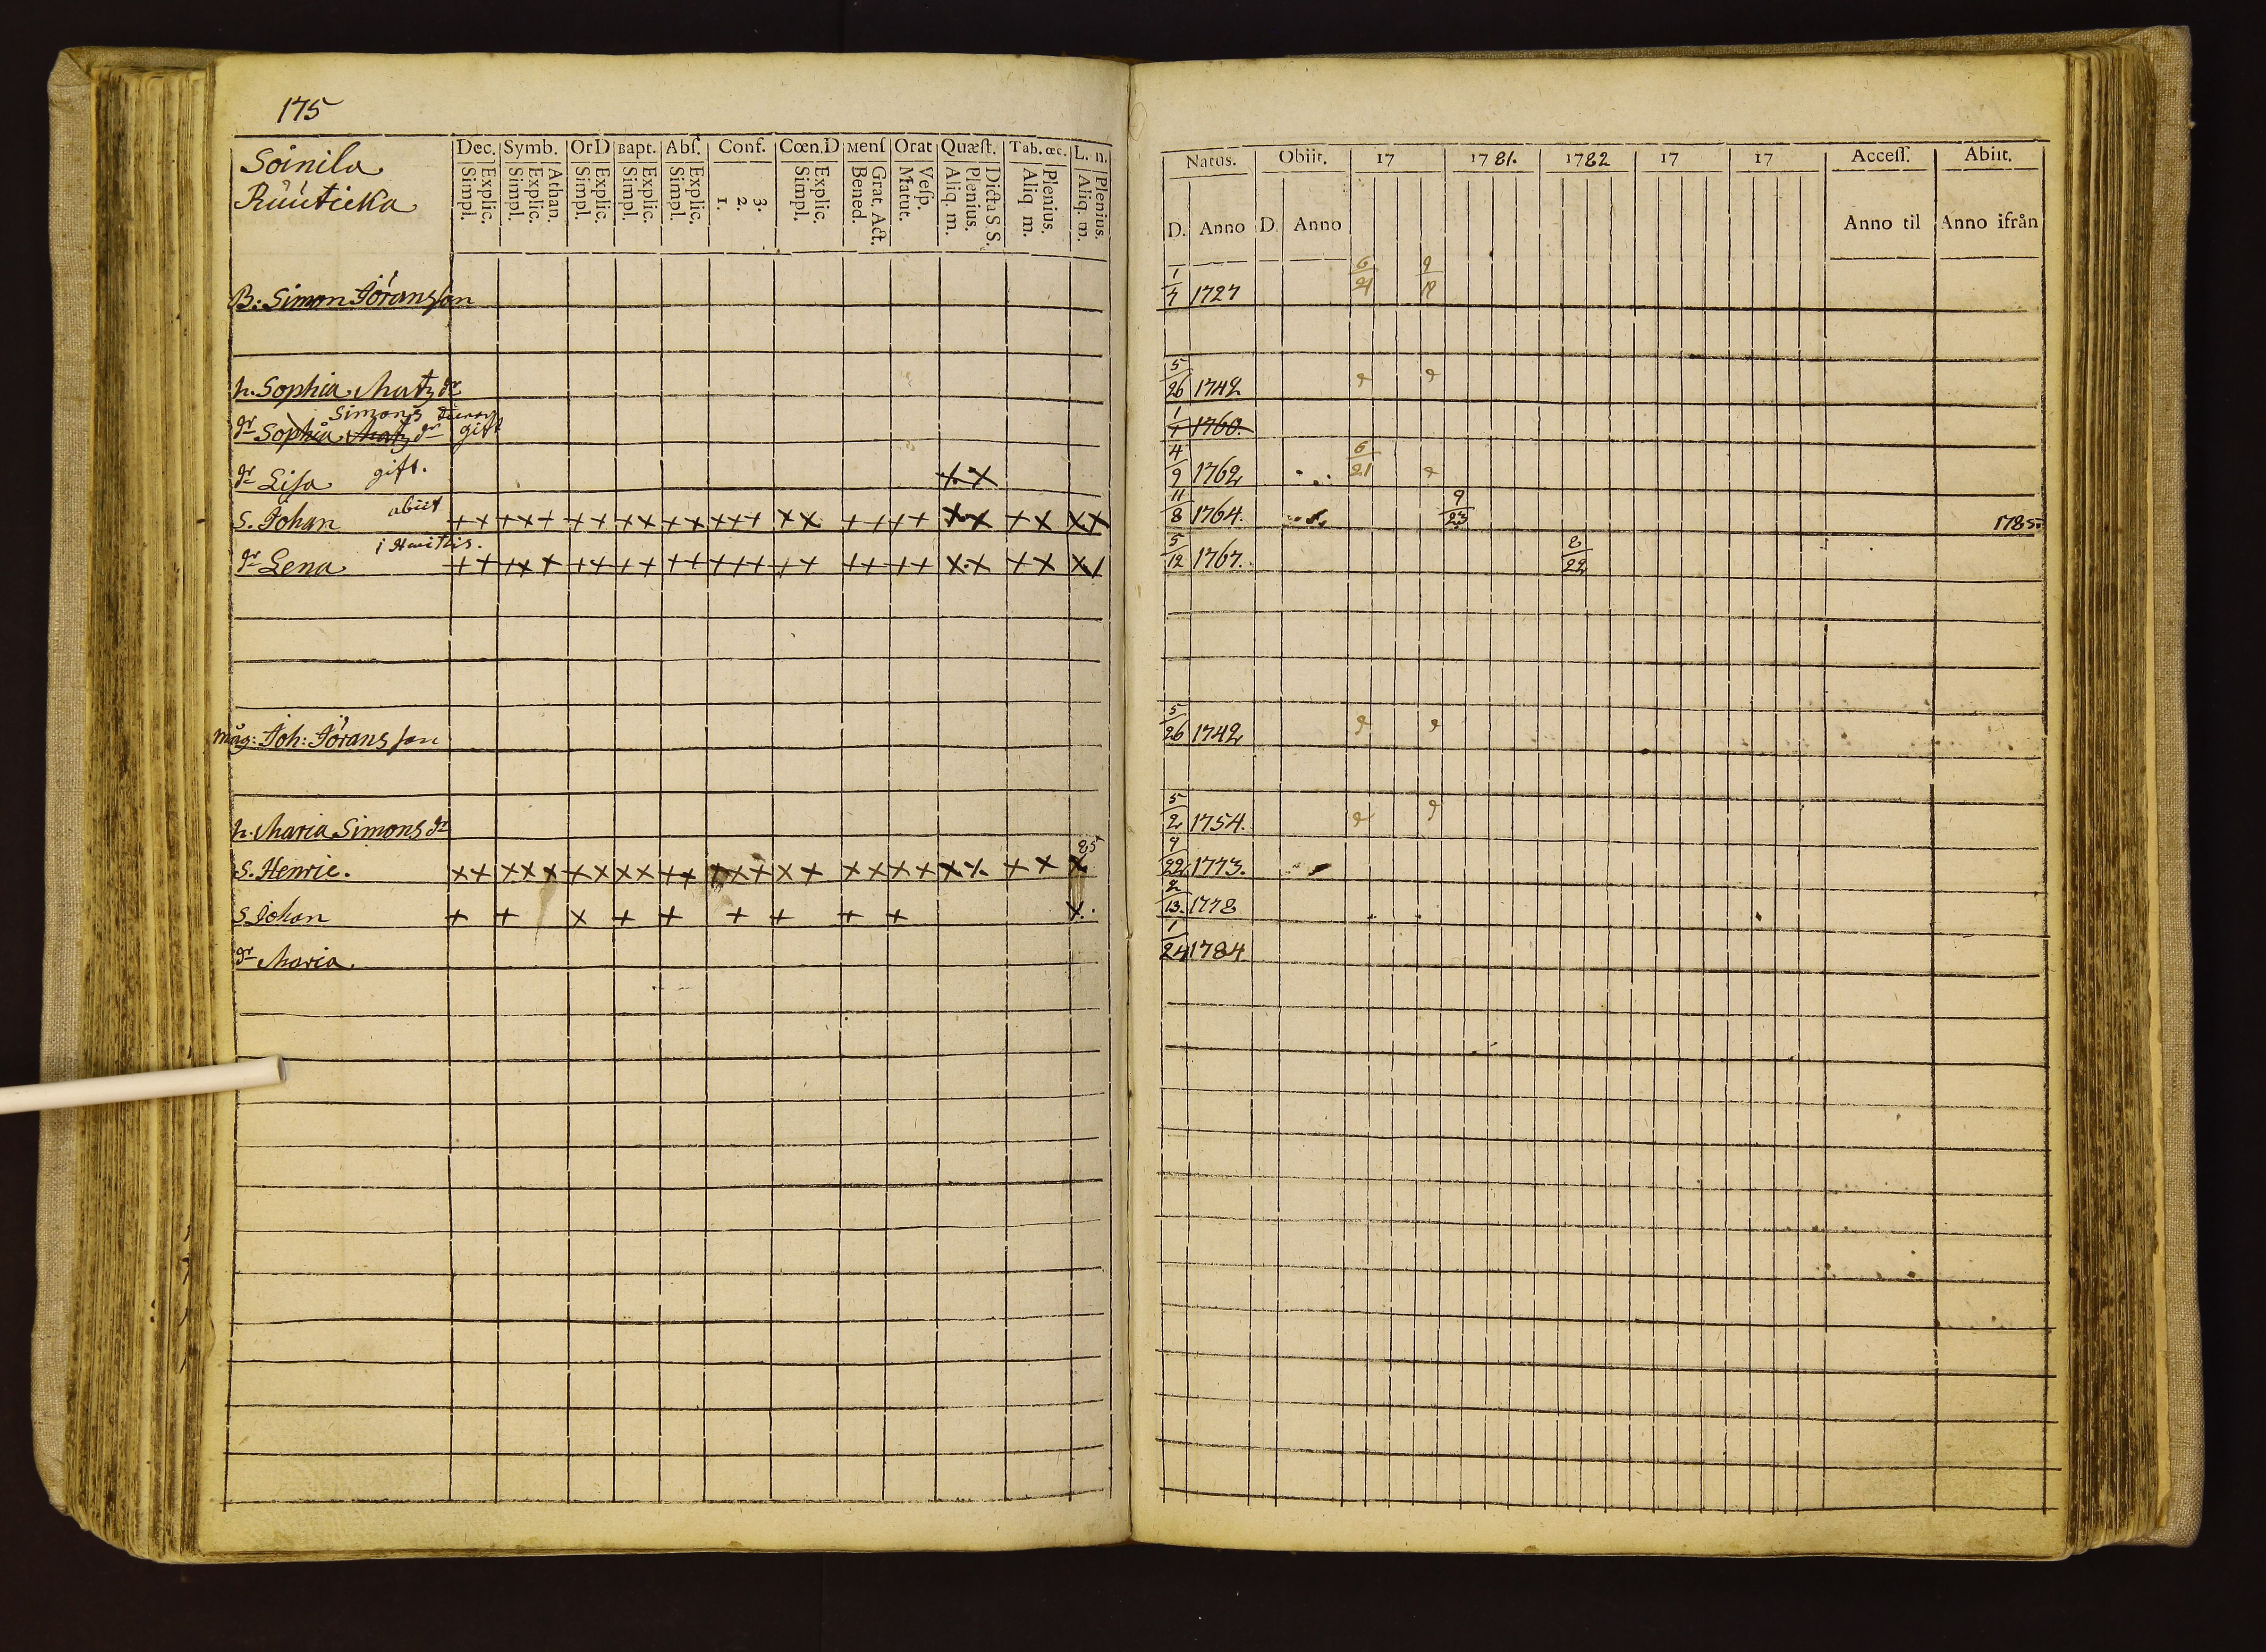 175
Soinila
Ruuticka
Dec. Symb. OrD Bapt. Abſ. Conf. Cœn.D Menſ Orat Quæſt. Tab.œc. L. n.
Explic. Simpl. Athan. Explic. Simpl. Explic. Simpl. Explic. Simpl. Explic. Simpl. 3. 2. 1. Explic. Simpl. Grat. Act. Bened. Veſp. Matut. Dicta S. S. Plenius. Aliq. m. Plenius. Aliq m. Plenius. Aliq. m.
Natus. Obiit. 17 1781. 1782 17 17 Acceſſ. Abiit.
D. Anno D. Anno Anno til Anno ifrån
B: Simon Jöransſon 1/7 1727 6/21 9
h. Sophia Matz dr 5/26 1742
Simons
dr Sophia Matz dr gift 1/1 1760.
dr Liſa gift. 4/9 1762 6/21
S. Johan abiit 11/8 1764. 9/23 1785.
dr Lena i 5/12 1767. 8/22
måg: Joh: Jörans ſon 5/26 1742
h. Maria Simons dr 5/2 1754.
S. Henric. 85 9/22 1773.
S. Johan 2/13. 1778
dr Maria. 1/24 1784